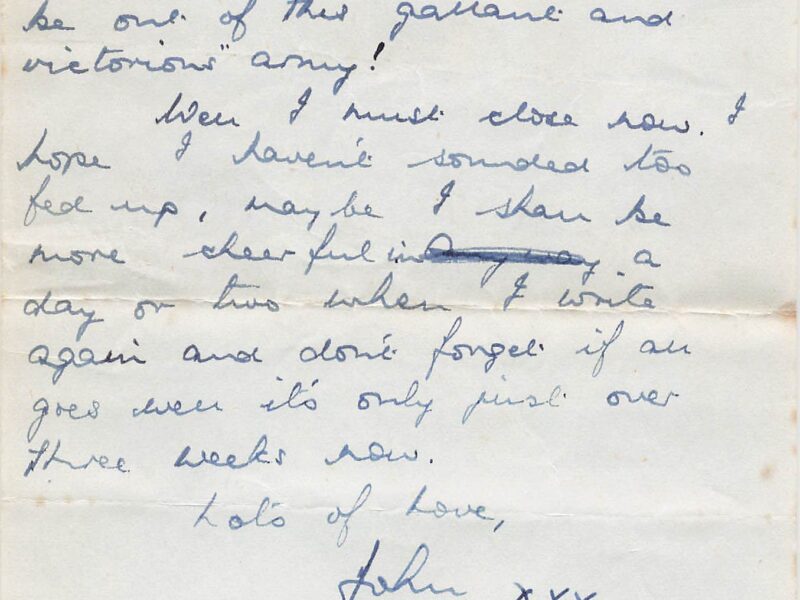 be out of this gallant and
victorious" army!
Well I must close now. I
hope I haven't sounded too
fed up, maybe I shall be
more cheerful in a
day or two when I write
again and don't forget if all
goes well it's only just over
three weeks now.
Lots of Love,
John xxx